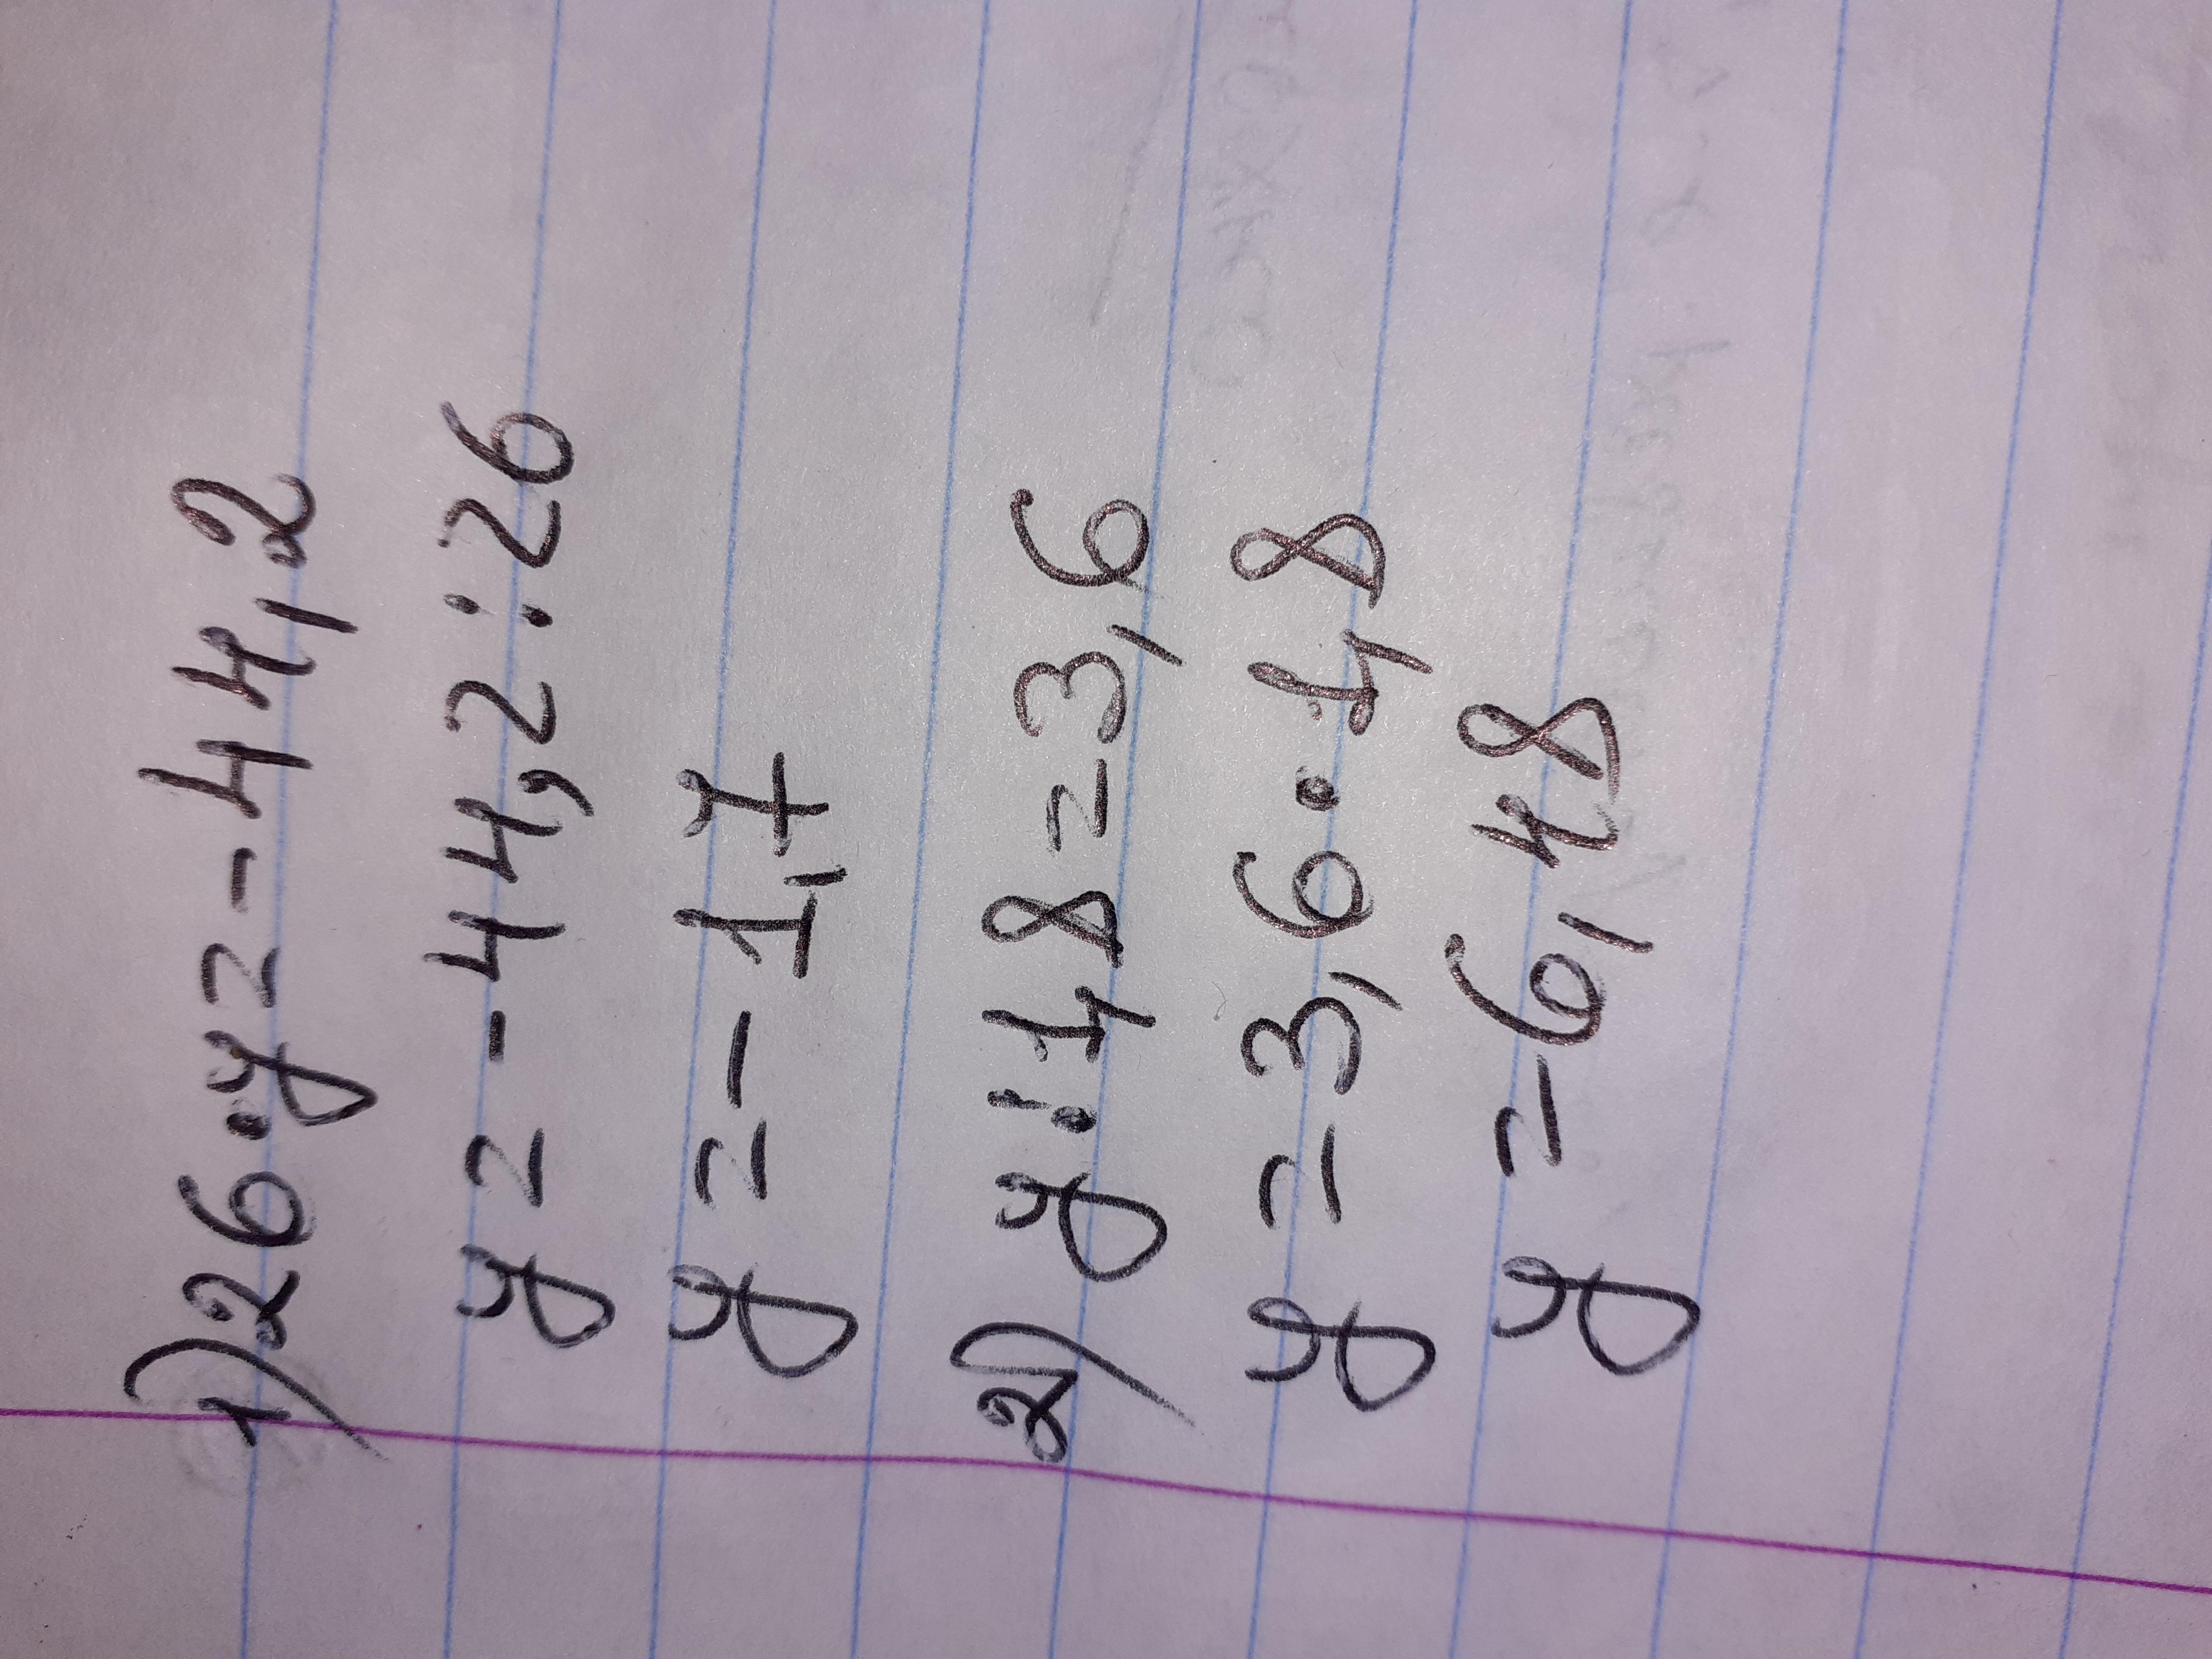 1) 26·y=-44,2
y=-44,2:26
y=-1,7
2) y:1,8=3,6
y=3,6·1,8
y=6,48